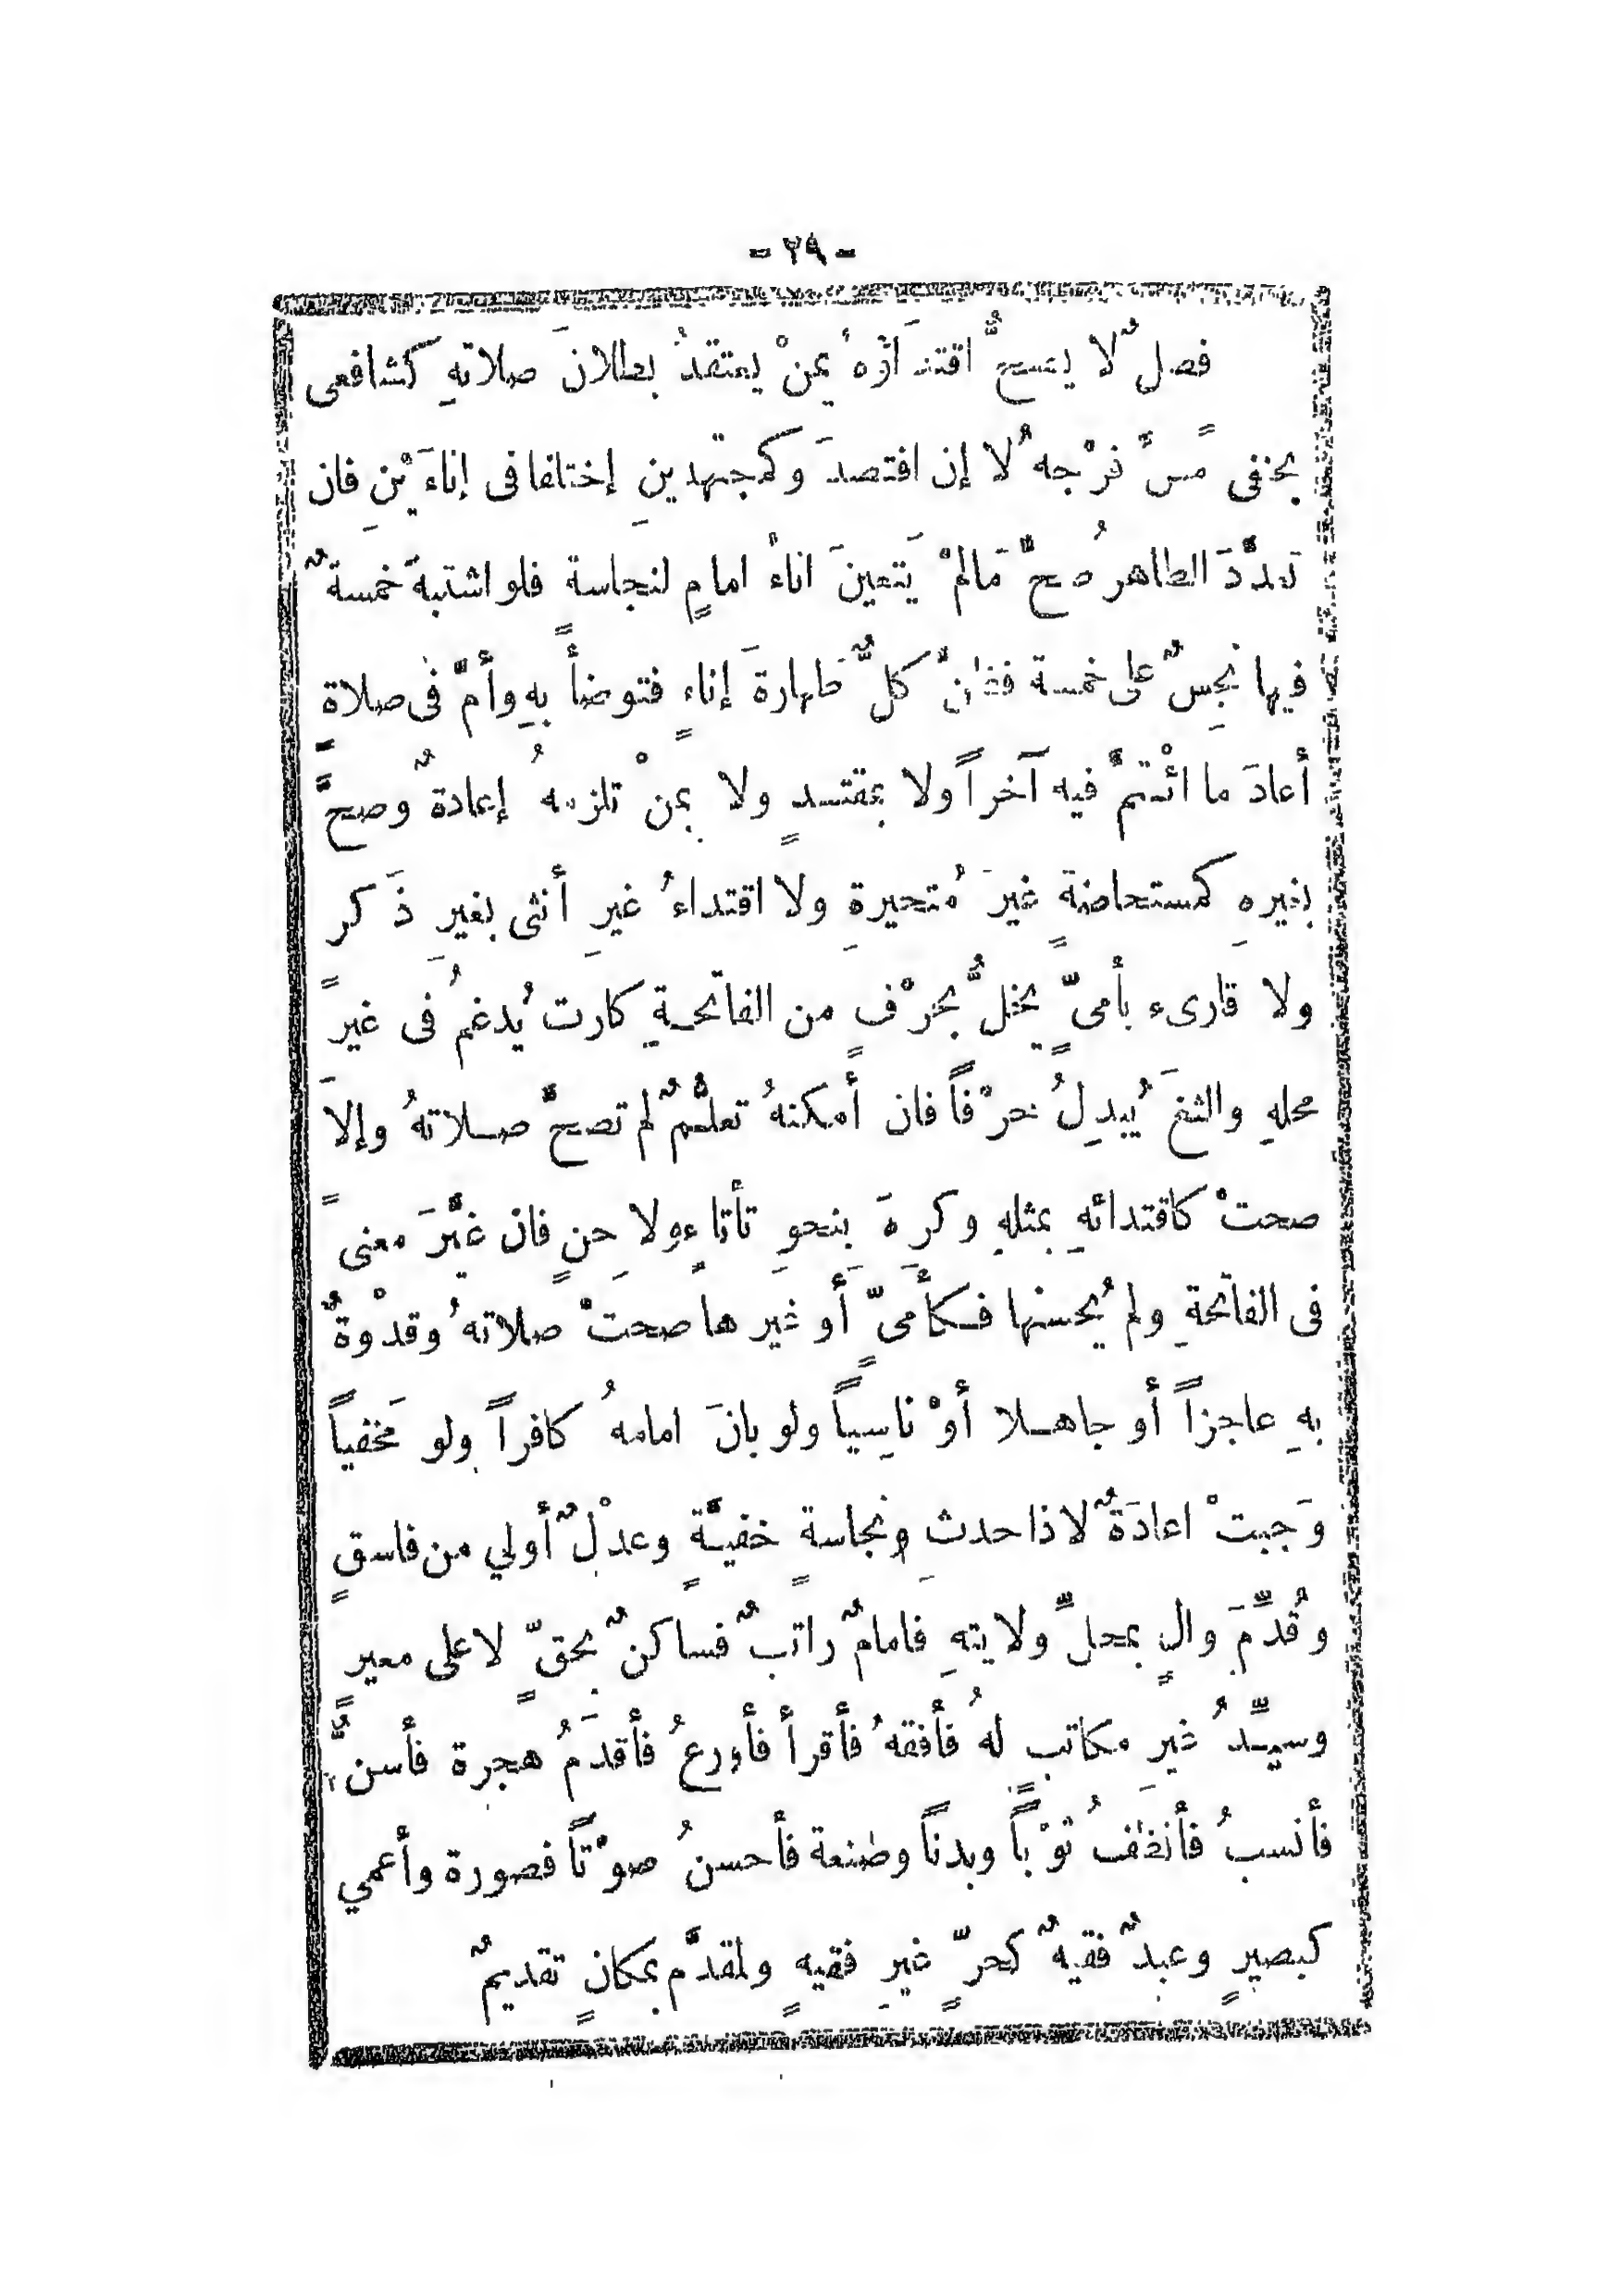 - ٢٩ -
فصلٌ لا يصحُّ اقتدَاؤُهُ بمنْ يعتقدُ بطلانَ صلاتهِ كشافعى
بحنفى مسَّ فرْجهُ لا إن افتصدَ وكمجتهدينِ إختلفا فى إناءَيْنِ فان
تعدَّدَ الطاهرُ صحَّ مَالمْ يَتعينَ اناءُ امامٍ لنجاسةٍ فلو اشتبهَ خمسةٌ
فيها نجِسٌ على خمسة فظنَّ كلٌّ طهارةَ إناءٍ فتوضأَ بهِ وأمَّ فى صلاةٍ
أعادَ ما ائْتمَّ فيه آخراً ولا بمقتدٍ ولا بمنْ تلزمهُ إعادةٌ وصحَّ
بغيرهِ كمستحاضةٍ غيرَ مُتحيرةِ ولا اقتداءُ غيرِ أنثى بغيرِ ذَكر
ولا قارىء بأمىّ يخلُّ بحرْفٍ من الفاتحةِ كارت يُدغمُ فى غير
محلهِ والثغَ يُبدِلُ حرْفاً فان أمكنهُ تعلُّمٌ لم تصحَّ صلاتهُ وإلاَ
صحتْ كاقتدائهِ بمثلهِ وكرهَ بنحوِ تأتاءٍ ولاحِنٍ فان غيَّرَ معنىً
فى الفاتحةِ ولم يُحسنها فكأمىّ أو غيرها صحتْ صلاتهُ وقدْوةٌ
بهِ عاجزاً أو جاهلا أوْ ناسِياً ولو بانَ امامهُ كافراً ولو مَخفياً
وَجبتْ اعادَةٌ لا ذا حدثٍ ونجاسةٍ خفيَّةٍ وعدْلٌ أولي من فاسقٍ
وقُدِّمَ والٍ بمحلِّ ولايتهِ فامامٌ راتبٌ فساكنٌ بحقّ لا على معير
وسيِّدُ غيرِ مكاتبٍ لهُ فأفقهُ فأقرأ فأورعُ فأقدَمُ هجرة فأسنُّ
فأنسبُ فأنظفُ ثوْباً وبدناً وصنعة فأحسنُ صوْتاً فصورة وأعمي
كبصيرٍ وعبدٌ فقيهٌ كحرّ غيرِ فقيهٍ ولمقدَّم بمكانٍ تقديمٌ